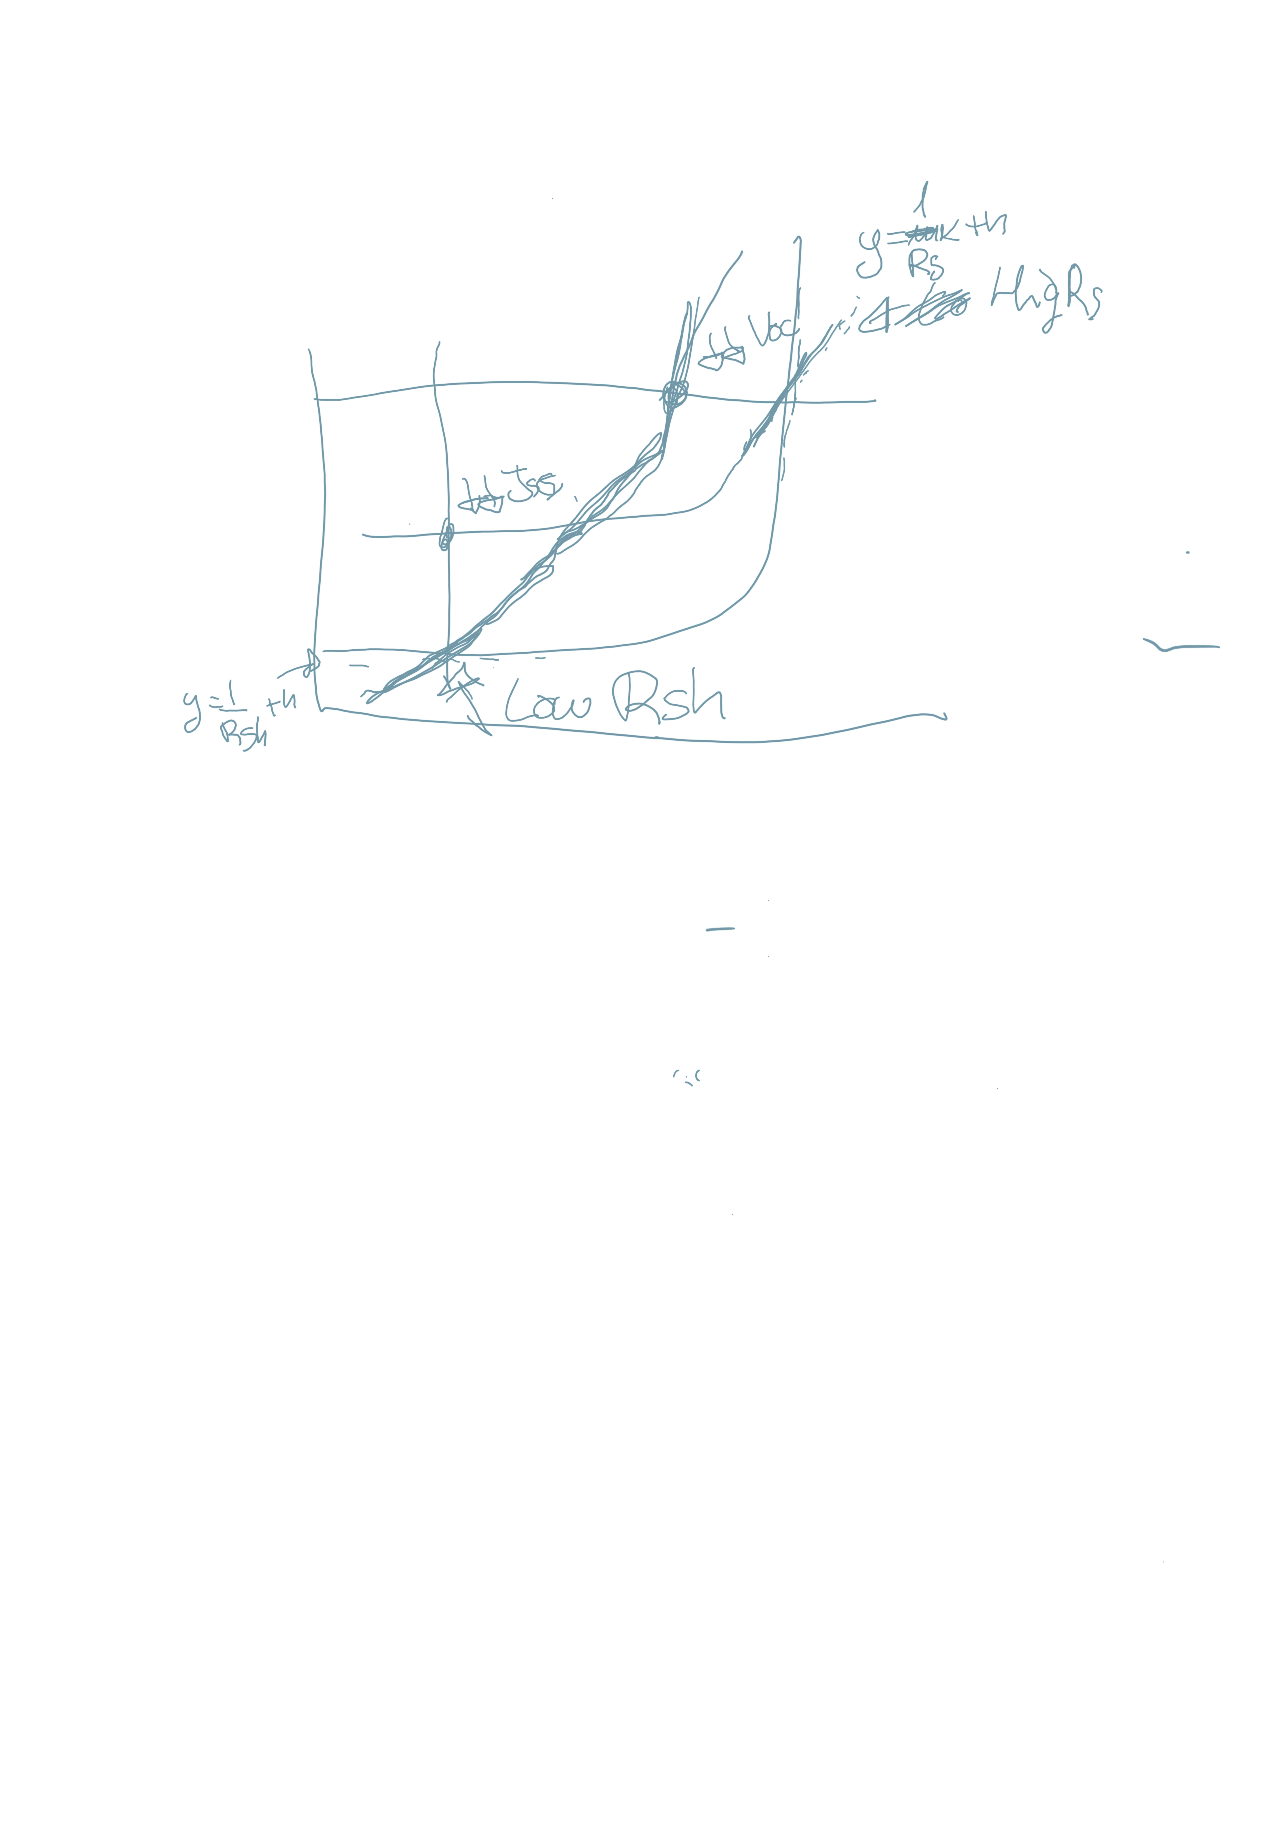 y = 1/Rs x + n
Hhig Rs
↓↓ Voc
↓↓ Jsc
y = 1/Rsh + n
Low Rsh